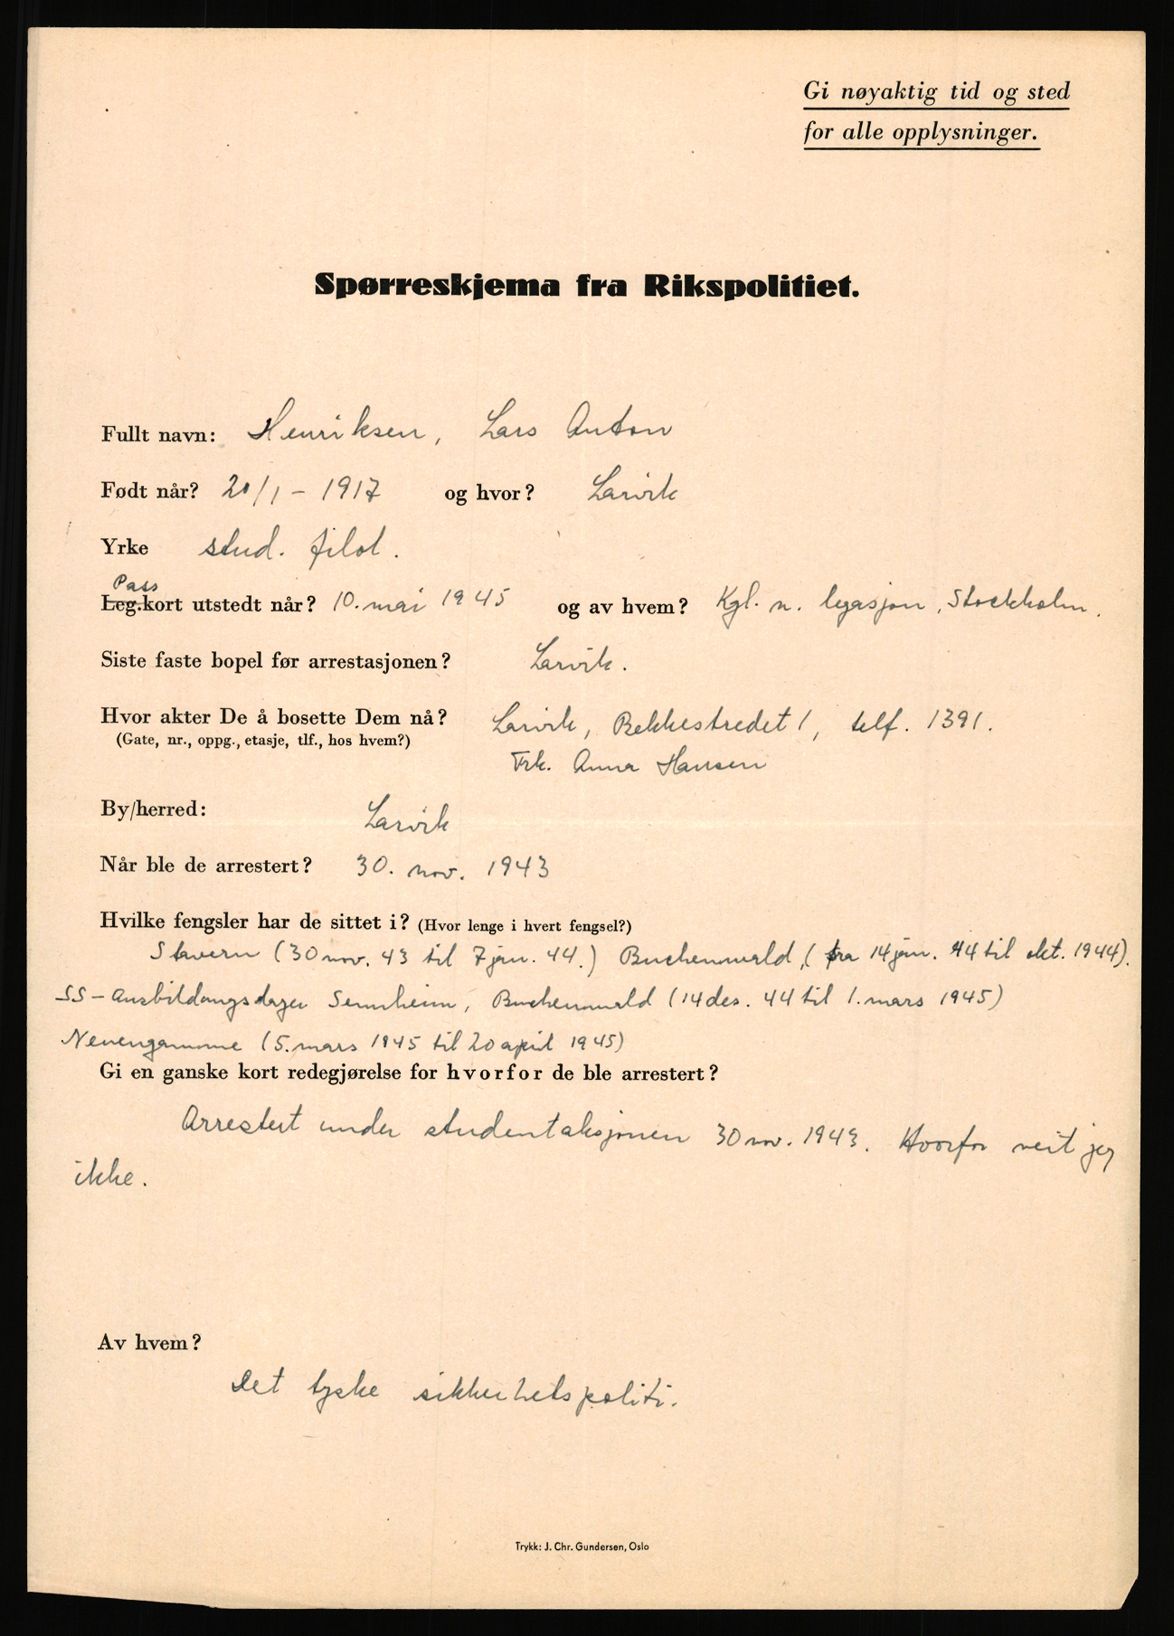 Gi nøyaktig tid og sted
for alle opplysninger.
Spørreskjema fra Rikspolitiet.
Fullt navn: Henriksen, Lars Anton
Født når? 20/1 - 1917 og hvor? Larvik
Yrke stud. filol.
Pass
Leg.kort utstedt når? 10. mai 1945 og av hvem? Kgl. n. legasjon, Stockholm.
Siste faste bopel før arrestasjonen? Larvik.
Hvor akter De å bosette Dem nå? Larvik, Bekkestredet 1, telf. 1391.
(Gate, nr., oppg., etasje, tlf., hos hvem?) Frk. Anna Hansen
By/herred: Larvik
Når ble de arrestert? 30. nov. 1943
Hvilke fengsler har de sittet i? (Hvor lenge i hvert fengsel?)
Stavern (30 nov. 43 til 7 jan. 44.) Buchenwald, (fra 14 jan. 44 til okt. 1944).
SS-Ausbildungslager Sennheim, Buchenwald (14 des. 44 til 1. mars 1945)
Neuengamme (5. mars 1945 til 20 april 1945)
Gi en ganske kort redegjørelse for hvorfor de ble arrestert?
Arrestert under studentaksjonen 30 nov. 1943. Hvorfor veit jeg
ikke.
Av hvem?
Det tyske sikkerhetspoliti.
Trykk: J. Chr. Gundersen, Oslo